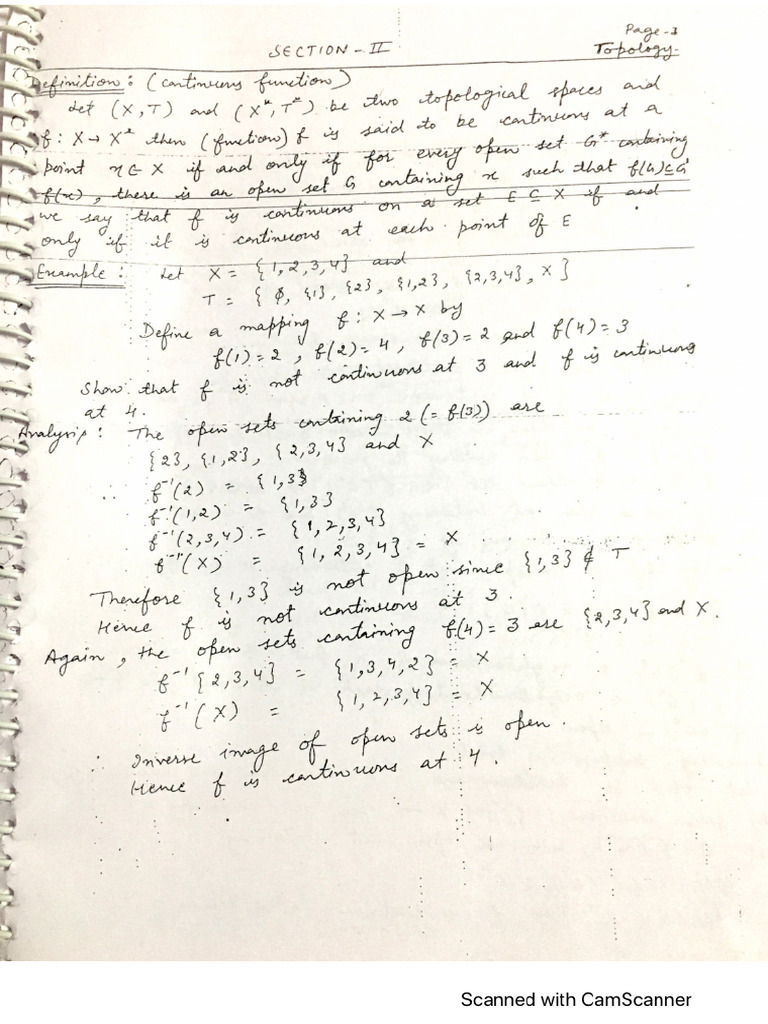 Page-3
SECTION-II
Topology.
Definition: (continuous function)
Let (X,T) and (X*,T*) be two topological spaces and
f: X→X* then (function) f is said to be continuous at a
point x∈X if and only if for every open set G* containing
f(x), there is an open set G containing x such that f(G)⊆G*
we say that f is continuous on a set E⊆X if and
only if it is continuous at each point of E
Example: Let X = {1,2,3,4} and
T = {ϕ, {1}, {2}, {1,2}, {2,3,4}, X}
Define a mapping f: X→X by
f(1)=2, f(2)=4, f(3)=2 and f(4)=3
Show that f is not continuous at 3 and f is continuous
at 4.
Analysis: The open sets containing 2 (=f(3)) are
{2}, {1,2}, {2,3,4} and X
∴ f⁻¹(2) = {1,3}
f⁻¹(1,2) = {1,3}
f⁻¹(2,3,4) = {1,2,3,4}
f⁻¹(X) = {1,2,3,4} = X
Therefore {1,3} is not open since {1,3} ∉ T
Hence f is not continuous at 3.
Again, the open sets containing f(4)=3 are {2,3,4} and X.
f⁻¹{2,3,4} = {1,3,4,2} = X
f⁻¹(X) = {1,2,3,4} = X
∴ Inverse image of open sets is open.
Hence f is continuous at 4.
Scanned with CamScanner